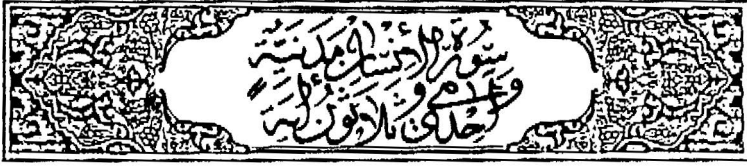 سورة الإنسان مدنية
وهي إحدى وثلاثون آية